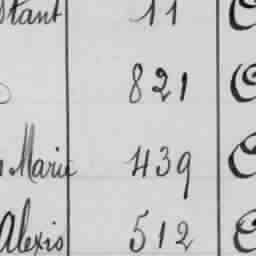 stant 11
821
Marie 439
Alexis 512